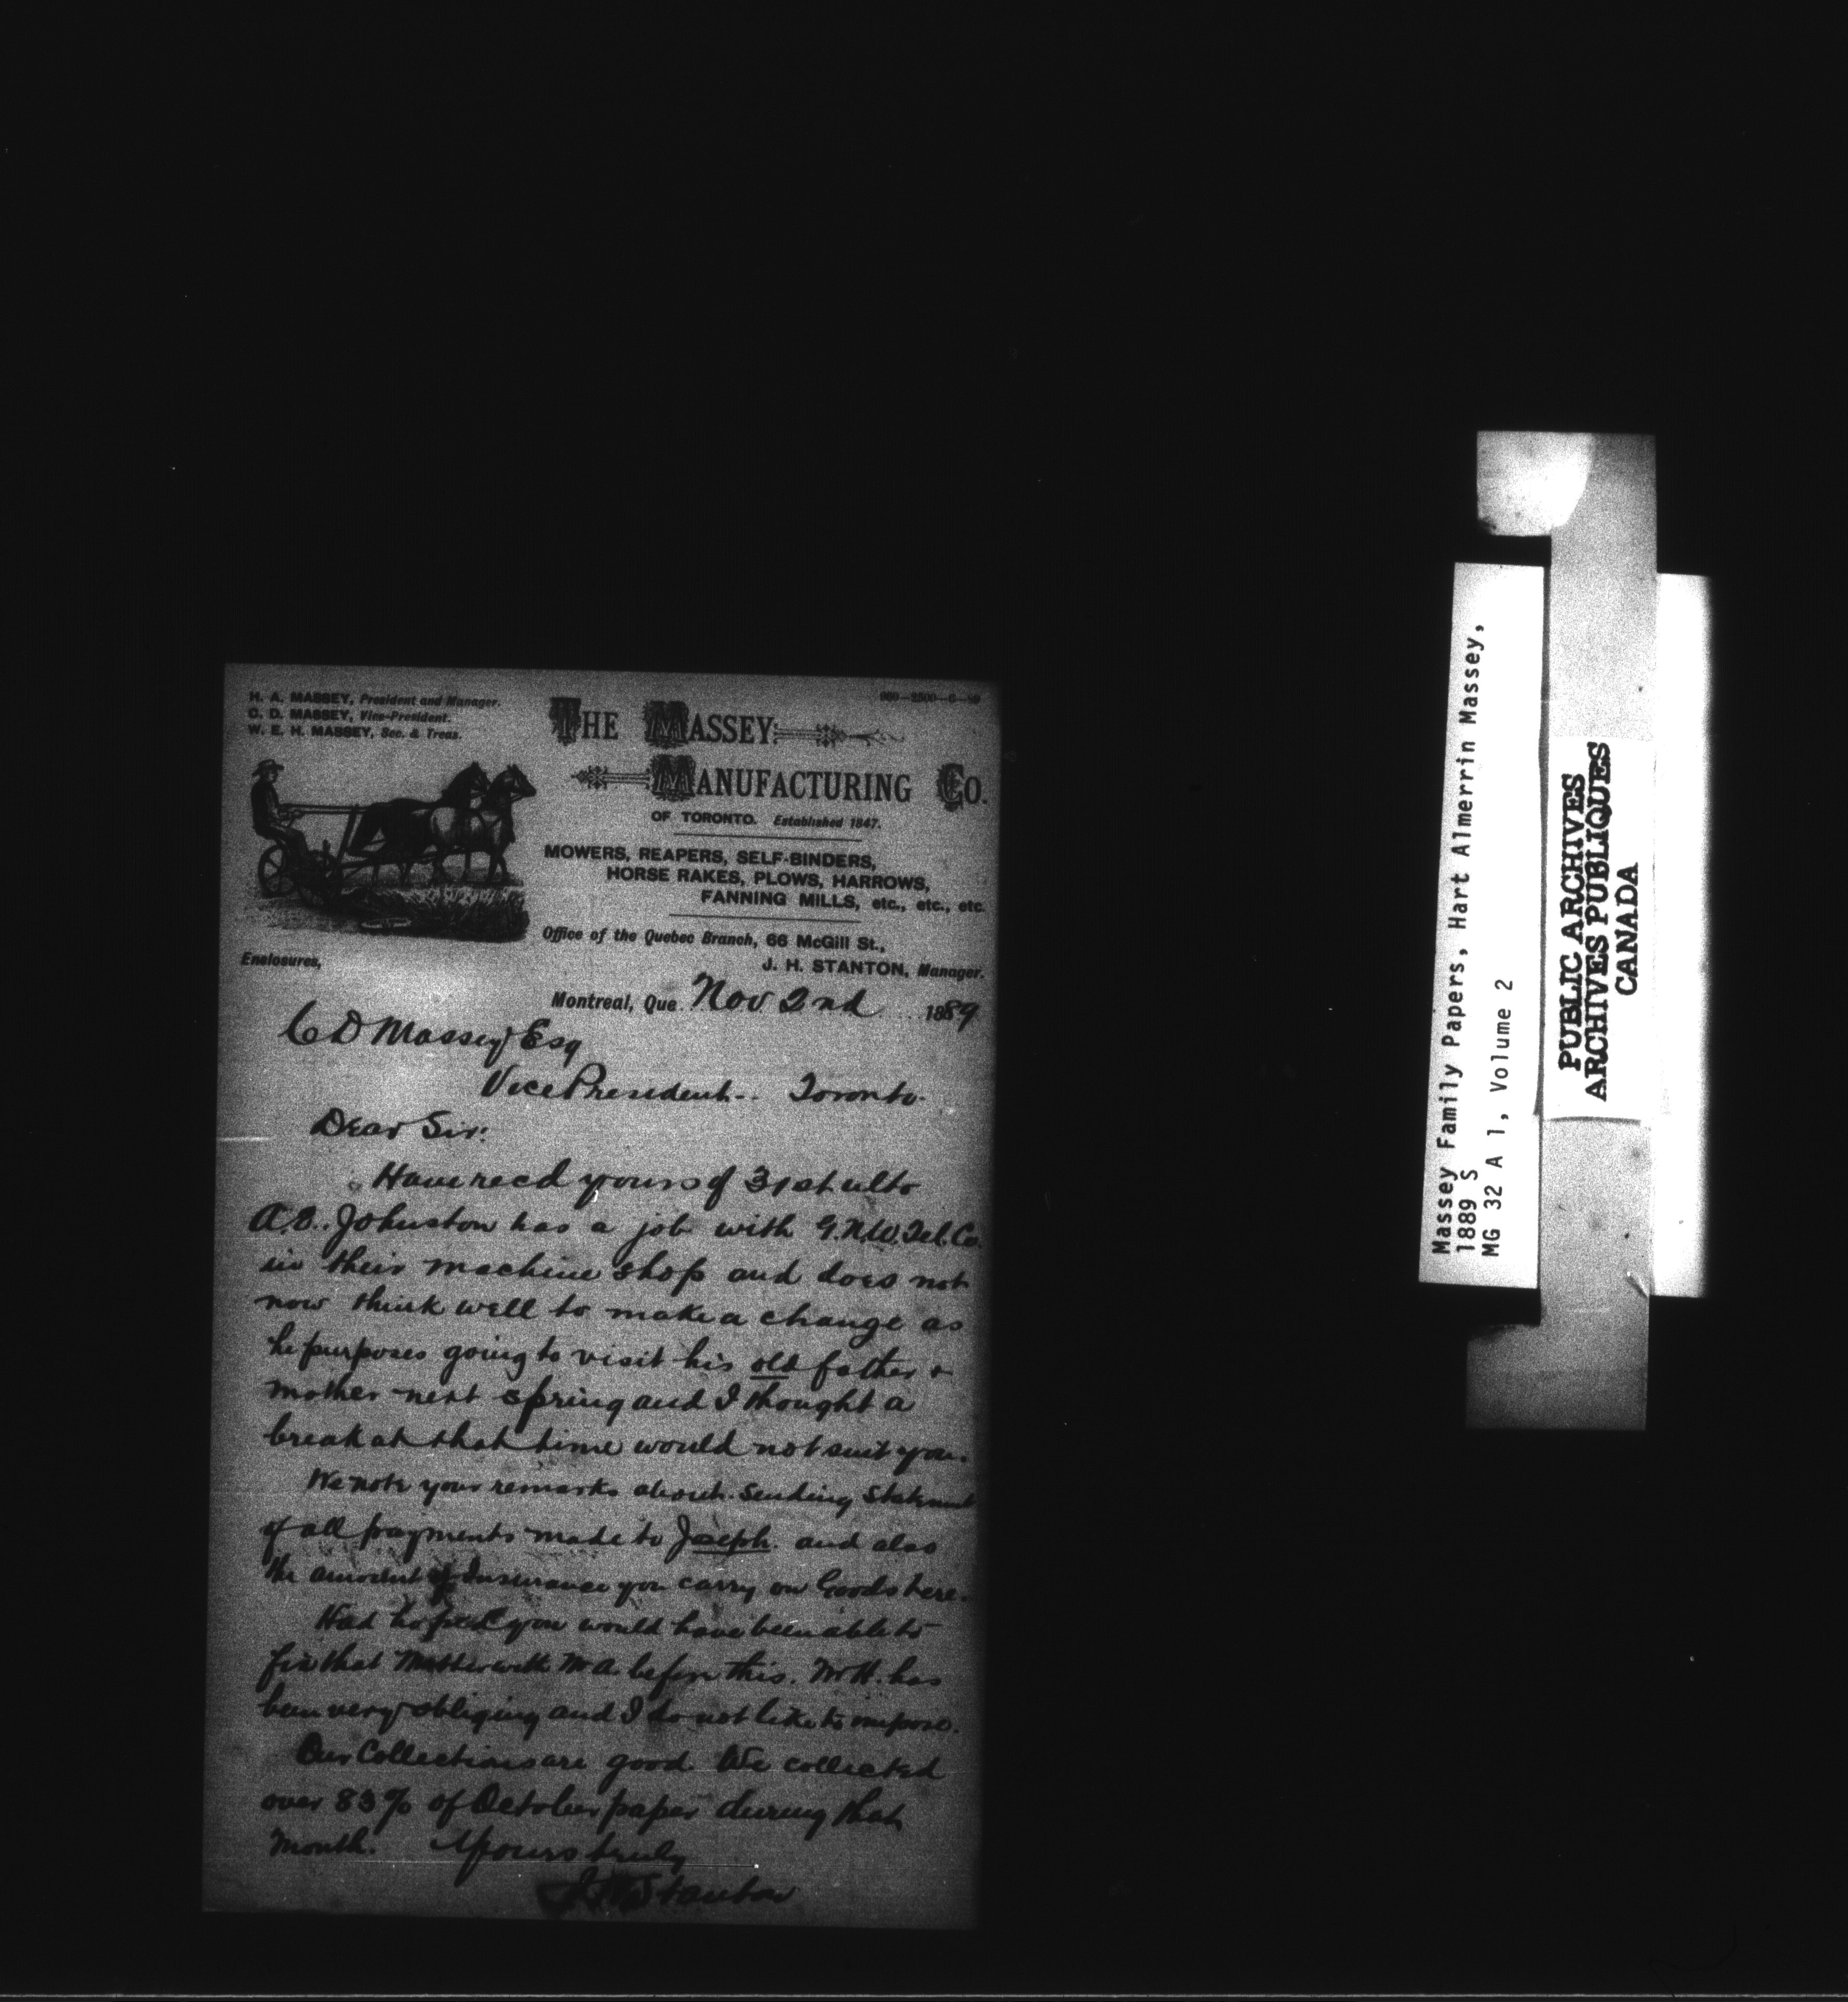 H. A. MASSEY, President and Manager.
C. D. MASSEY, Vice-President.
W. E. H. MASSEY, Sec. & Treas.
THE MASSEY
MANUFACTURING CO.
OF TORONTO. Established 1847.
MOWERS, REAPERS, SELF-BINDERS,
HORSE RAKES, PLOWS, HARROWS,
FANNING MILLS, etc., etc., etc.
Office of the Quebec Branch, 66 McGill St.,
J. H. STANTON, Manager.
Enclosures,
Montreal, Que. Nov 2nd 1889
C D Massey Esq
Vice President.. Toronto.
Dear Sir:
Have recd yours of 31st ulto
Johnston has a job with G.N.W. Tel. Co.
in their machine shop and does not
now think well to make a change as
he purposes going to visit his old father &
mother next spring and I thought a
break at that time would not suit you.
We note your remarks about sending statement
of all payments made to Joseph. and also
the amount of Insurance you carry on Goods here.
Had hoped you would have been able to
fix that Matter with Mr A. before this. Mr H. has
been very obliging and I do not like to impose.
Our Collections are good. We collected
over 83% of October paper during that
month. Yours truly
J H Stanton
Massey Family Papers, Hart Almerrin Massey,
1889 S
MG 32 A 1, Volume 2
PUBLIC ARCHIVES
ARCHIVES PUBLIQUES
CANADA